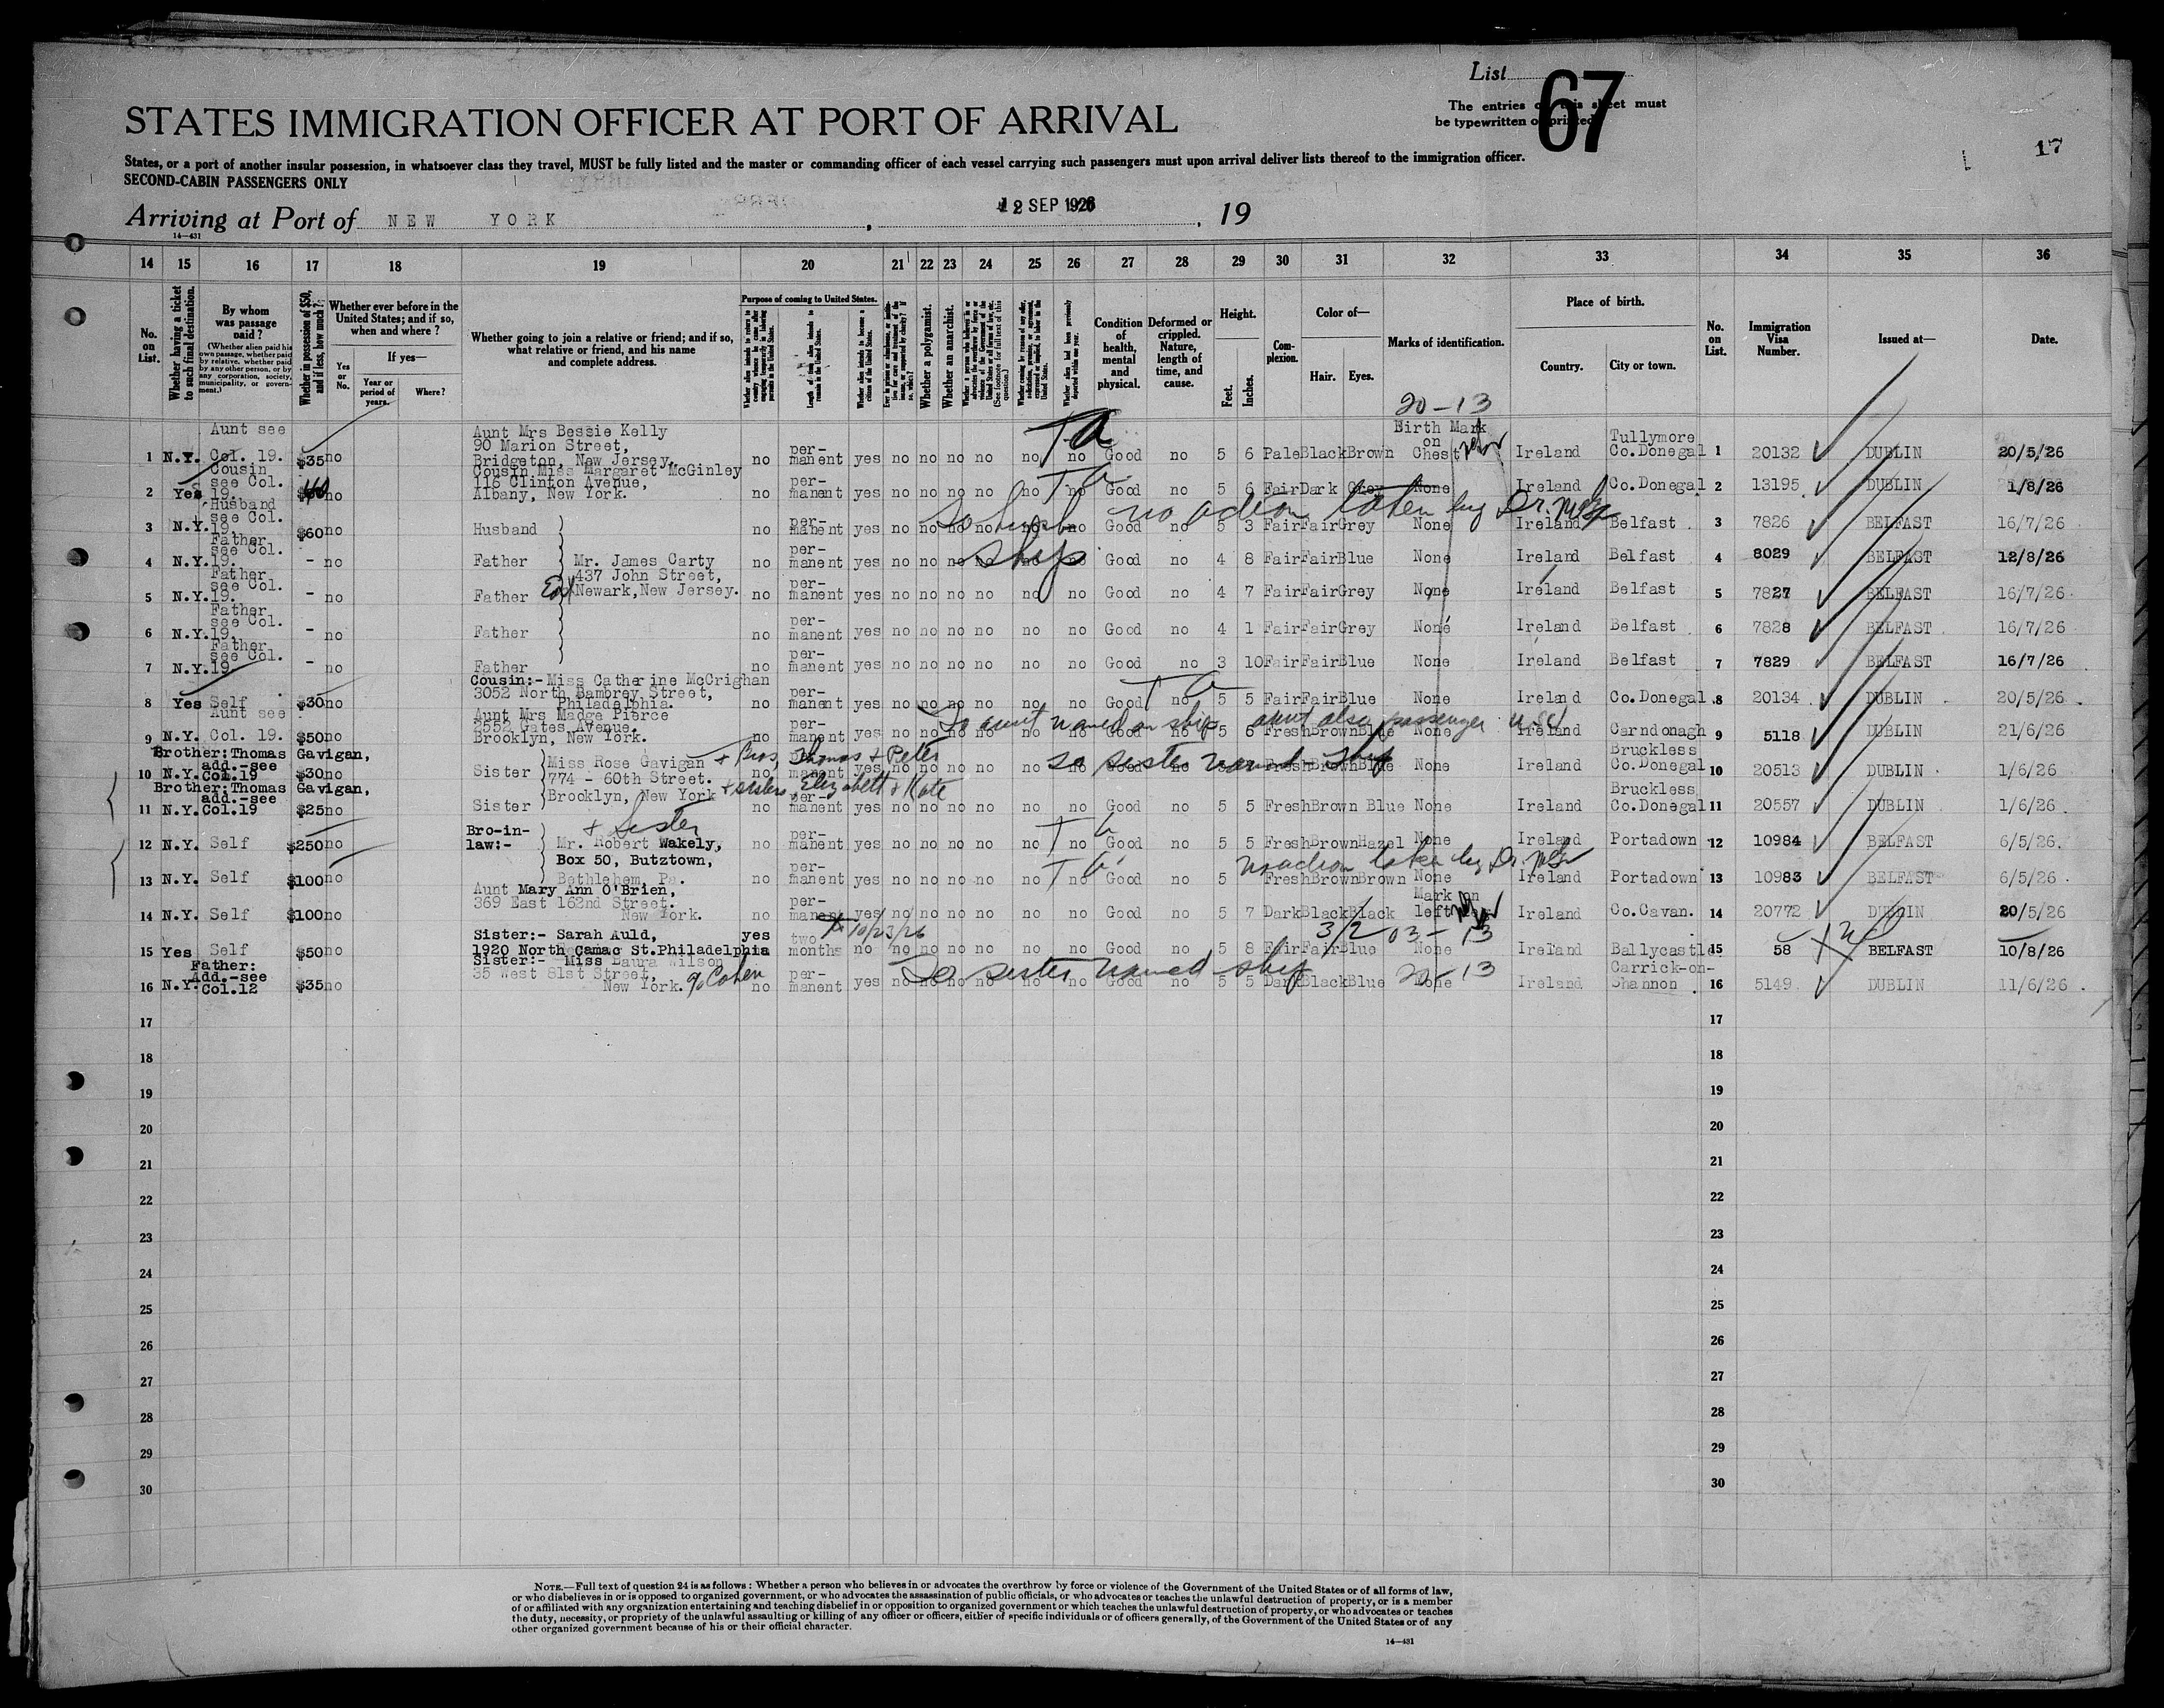 List 67
The entries on this sheet must
be typewritten or printed.
17
STATES IMMIGRATION OFFICER AT PORT OF ARRIVAL
States, or a port of another insular possession, in whatsoever class they travel, MUST be fully listed and the master or commanding officer of each vessel carrying such passengers must upon arrival deliver lists thereof to the immigration officer.
SECOND-CABIN PASSENGERS ONLY
Arriving at Port of NEW YORK, 12 SEP 1926, 19
14—431
14 15 16 17 18 19 20 21 22 23 24 25 26 27 28 29 30 31 32 33 34 35 36
No. on List.
Whether having a ticket to such final destination.
By whom was passage paid?
(Whether alien paid his own passage, whether paid by relative, whether paid by any other person, or by any corporation, society, municipality, or government.)
Whether in possession of $50, and if less, how much?
Whether ever before in the United States; and if so, when and where?
Yes or No.
If yes—
Year or period of years.
Where?
Whether going to join a relative or friend; and if so, what relative or friend, and his name and complete address.
Purpose of coming to United States.
Length of time alien intends to remain in the United States.
Whether alien intends to become a citizen of the United States.
Whether a polygamist.
Whether an anarchist.
Condition of health, mental and physical.
Deformed or crippled. Nature, length of time, and cause.
Height.
Feet.
Inches.
Complexion.
Color of—
Hair.
Eyes.
Marks of identification.
Place of birth.
Country.
City or town.
No. on List.
Immigration Visa Number.
Issued at—
Date.
20-13
1 N.Y. Aunt see Col. 19. $35 no Aunt Mrs Bessie Kelly 90 Marion Street, Bridgeton, New Jersey. no permanent yes no no no no no no Good no 5 6 Pale Black Brown Birth Mark on Chest Ireland Tullymore Co.Donegal 1 20132 DUBLIN 20/5/26
Ta
2 Yes Cousin see Col. 19. no Cousin Miss Margaret McGinley 116 Clinton Avenue, Albany, New York. no permanent yes no no no no no no Good no 5 6 Fair Dark Grey None Ireland Co.Donegal 2 13195 DUBLIN 1/8/26
Ta
3 N.Y. Husband see Col. 19. $60 no Husband no permanent yes no no no no no no Good no 5 3 Fair Fair Grey None Ireland Belfast 3 7826 BELFAST 16/7/26
so husb ship
no action taken by Dr.
4 N.Y. Father see Col. 19. - no Father Mr. James Carty no permanent yes no no no no no no Good no 4 8 Fair Fair Blue None Ireland Belfast 4 8029 BELFAST 12/8/26
437 John Street,
East Newark, New Jersey.
5 N.Y. Father see Col. 19. - no Father no permanent yes no no no no no no Good no 4 7 Fair Fair Grey None Ireland Belfast 5 7827 BELFAST 16/7/26
6 N.Y. Father see Col. 19. - no Father no permanent yes no no no no no no Good no 4 1 Fair Fair Grey None Ireland Belfast 6 7828 BELFAST 16/7/26
7 N.Y. Father see Col. 19 - no Father no permanent yes no no no no no no Good no 3 10 Fair Fair Blue None Ireland Belfast 7 7829 BELFAST 16/7/26
8 Yes Self $30 no Cousin:- Miss Catherine McCrighan 3052 North Bambrey Street, Philadelphia. no permanent yes no no no no no no Good no 5 5 Fair Fair Blue None Ireland Co.Donegal 8 20134 DUBLIN 20/5/26
Ta
9 N.Y. Aunt see Col. 19. $50 no Aunt Mrs Madge Pierce 2552 Gates Avenue, Brooklyn, New York. no permanent yes no no no no no no Good no 5 6 Fresh Brown Blue None Ireland Carndonagh 9 5118 DUBLIN 21/6/26
To aunt named on ship aunt also passenger USC
10 N.Y. Brother:Thomas Gavigan, add.-see Col.19 $30 no Sister Miss Rose Gavigan 774 - 60th Street. Brooklyn, New York no permanent yes no no no no no no Good no Fresh Brown Blue None Ireland Bruckless Co.Donegal 10 20513 DUBLIN 1/6/26
+ Bros, Thomas + Peter
+ sisters, Elizabeth + Kate
so sister named ship
11 N.Y. Brother:Thomas Gavigan, add.-see Col.19 $25 no Sister no permanent yes no no no no no no Good no 5 5 Fresh Brown Blue None Ireland Bruckless Co.Donegal 11 20557 DUBLIN 1/6/26
12 N.Y. Self $250 no Bro-in-law:- Mr. Robert Wakely, Box 50, Butztown, Bethlehem, Pa. no permanent yes no no no no no no Good no 5 5 Fresh Brown Hazel None Ireland Portadown 12 10984 BELFAST 6/5/26
+ Sister
Ta
13 N.Y. Self $100 no no permanent yes no no no no no no Good no 5 Fresh Brown Brown None Ireland Portadown 13 10983 BELFAST 6/5/26
Ta
no action taken by Dr.
14 N.Y. Self $100 no Aunt Mary Ann O'Brien, 369 East 162nd Street. New York. no permanent yes no no no no no no Good no 5 7 Dark Black Black Mark on left Ireland Co.Cavan. 14 20772 DUBLIN 20/5/26
15 Yes Self $50 no Sister:- Sarah Auld, 1920 North Camac St.Philadelphia yes two months no no no no no no no Good no 5 8 Fair Fair Blue None Ireland Ballycastle 15 58 BELFAST 10/8/26
10/23/26
3/2 03-13
16 N.Y. Father: Add.-see Col.12 $35 no Sister:- Miss Laura Wilson 35 West 81st Street, New York. no permanent yes no no no no no no Good no 5 5 Dark Black Blue None Ireland Carrick-on-Shannon 16 5149 DUBLIN 11/6/26
c/o Cohen
To sister named ship
20-13
17 17
18 18
19 19
20 20
21 21
22 22
23 23
24 24
25 25
26 26
27 27
28 28
29 29
30 30
NOTE.—Full text of question 24 is as follows: Whether a person who believes in or advocates the overthrow by force or violence of the Government of the United States or of all forms of law,
or who disbelieves in or is opposed to organized government, or who advocates the assassination of public officials, or who advocates or teaches the unlawful destruction of property, or is a member
of or affiliated with any organization entertaining and teaching disbelief in or opposition to organized government or which teaches the unlawful destruction of property, or who advocates or teaches
the duty, necessity, or propriety of the unlawful assaulting or killing of any officer or officers, either of specific individuals or of officers generally, of the Government of the United States or of any
other organized government because of his or their official character.
14—431